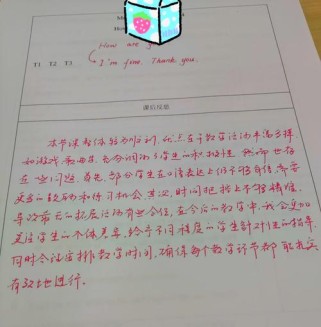 How are y
T1 T2 T3
I'm fine. Thank you.
课后反思
本节课整体较为顺利，优点在于教学活动丰富多样，
如游戏和曲，充分调动了学生的积极性。然而也存
在一些问题。首先，部分学生在口语表达上仍不够自信，需要
更多的鼓励和练习机会。其次，时间把控上不够精准，
导致最后的拓展活动有些仓促。在今后的教学中，我会更加
关注学生的个体差异，给予不同程度的学生针对性的指导。
同时合理安排教学时间，确保每个教学环节都能充实
有效地进行。